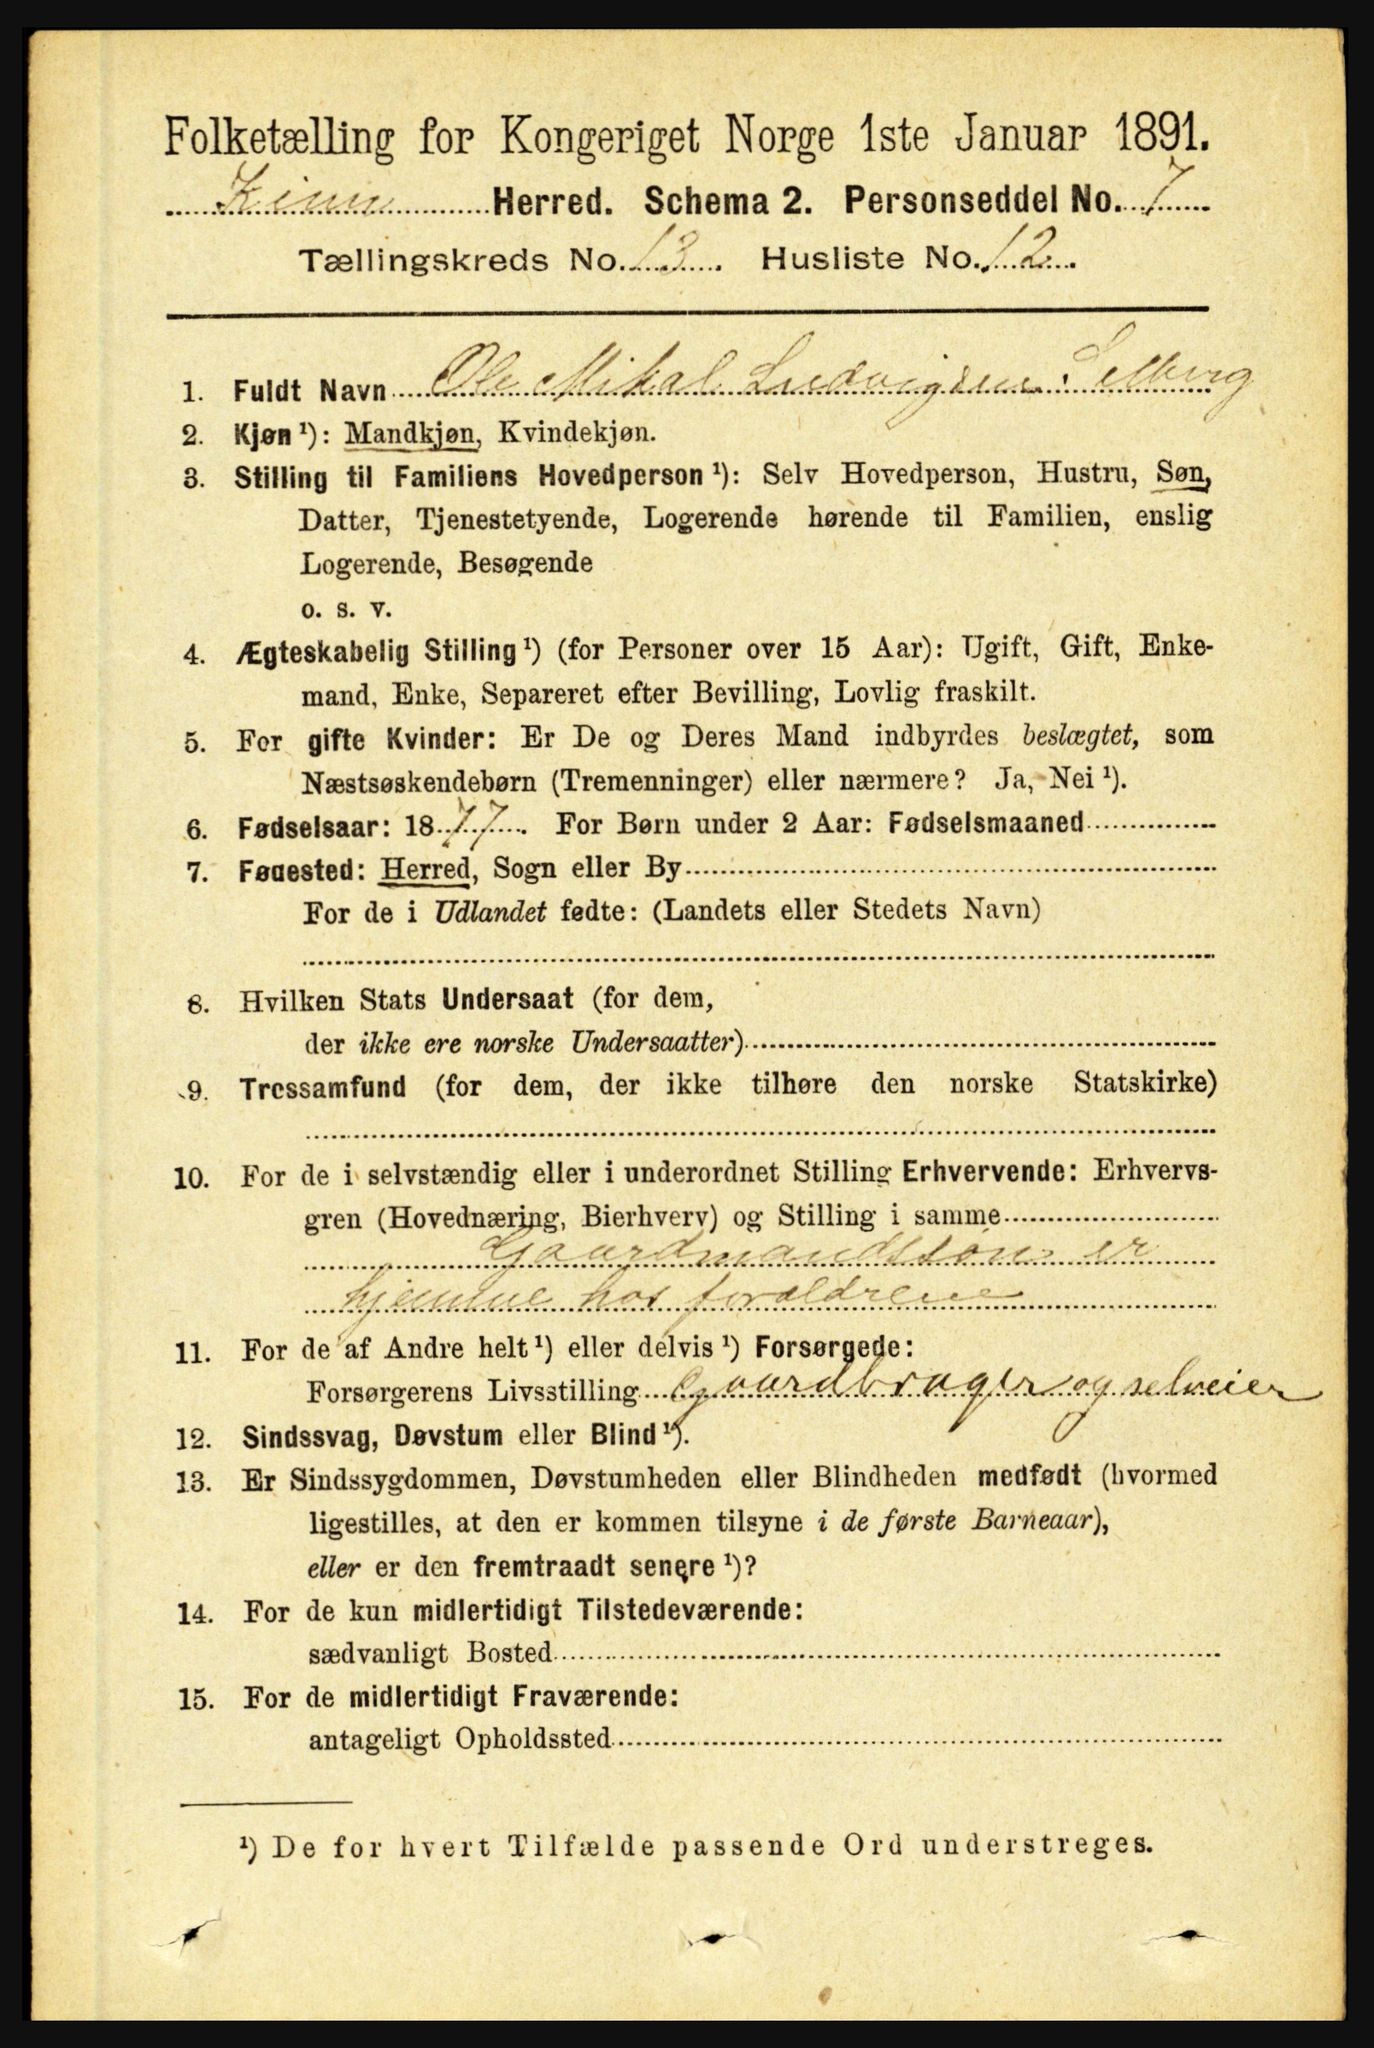 Folketælling for Kongeriget Norge 1ste Januar 1891.
Kinn Herred. Schema 2. Personseddel No. 7
Tællingskreds No. 13. Husliste No. 12.
1. Fuldt Navn Ole Mikal Ludvigsen Solberg
2. Kjøn ¹): Mandkjøn, Kvindekjøn.
3. Stilling til Familiens Hovedperson ¹): Selv Hovedperson, Hustru, Søn,
Datter, Tjenestetyende, Logerende hørende til Familien, enslig
Logerende, Besøgende
o. s. v.
4. Ægteskabelig Stilling ¹) (for Personer over 15 Aar): Ugift, Gift, Enke-
mand, Enke, Separeret efter Bevilling, Lovlig fraskilt.
5. For gifte Kvinder: Er De og Deres Mand indbyrdes beslægtet, som
Næstsøskendebørn (Tremenninger) eller nærmere? Ja, Nei ¹).
6. Fødselsaar: 1877. For Børn under 2 Aar: Fødselsmaaned
7. Fødested: Herred, Sogn eller By
For de i Udlandet fødte: (Landets eller Stedets Navn)
8. Hvilken Stats Undersaat (for dem,
der ikke ere norske Undersaatter)
9. Trossamfund (for dem, der ikke tilhøre den norske Statskirke)
10. For de i selvstændig eller i underordnet Stilling Erhvervende: Erhvervs-
gren (Hovednæring, Bierhverv) og Stilling i samme
Gaardmandssøn er
hjemme hos forældrene
11. For de af Andre helt ¹) eller delvis ¹) Forsørgede:
Forsørgerens Livsstilling Gaardbruger og selveier
12. Sindssvag, Døvstum eller Blind ¹).
13. Er Sindssygdommen, Døvstumheden eller Blindheden medfødt (hvormed
ligestilles, at den er kommen tilsyne i de første Barneaar),
eller er den fremtraadt senere ¹)?
14. For de kun midlertidigt Tilstedeværende:
sædvanligt Bosted
15. For de midlertidigt Fraværende:
antageligt Opholdssted
¹) De for hvert Tilfælde passende Ord understreges.